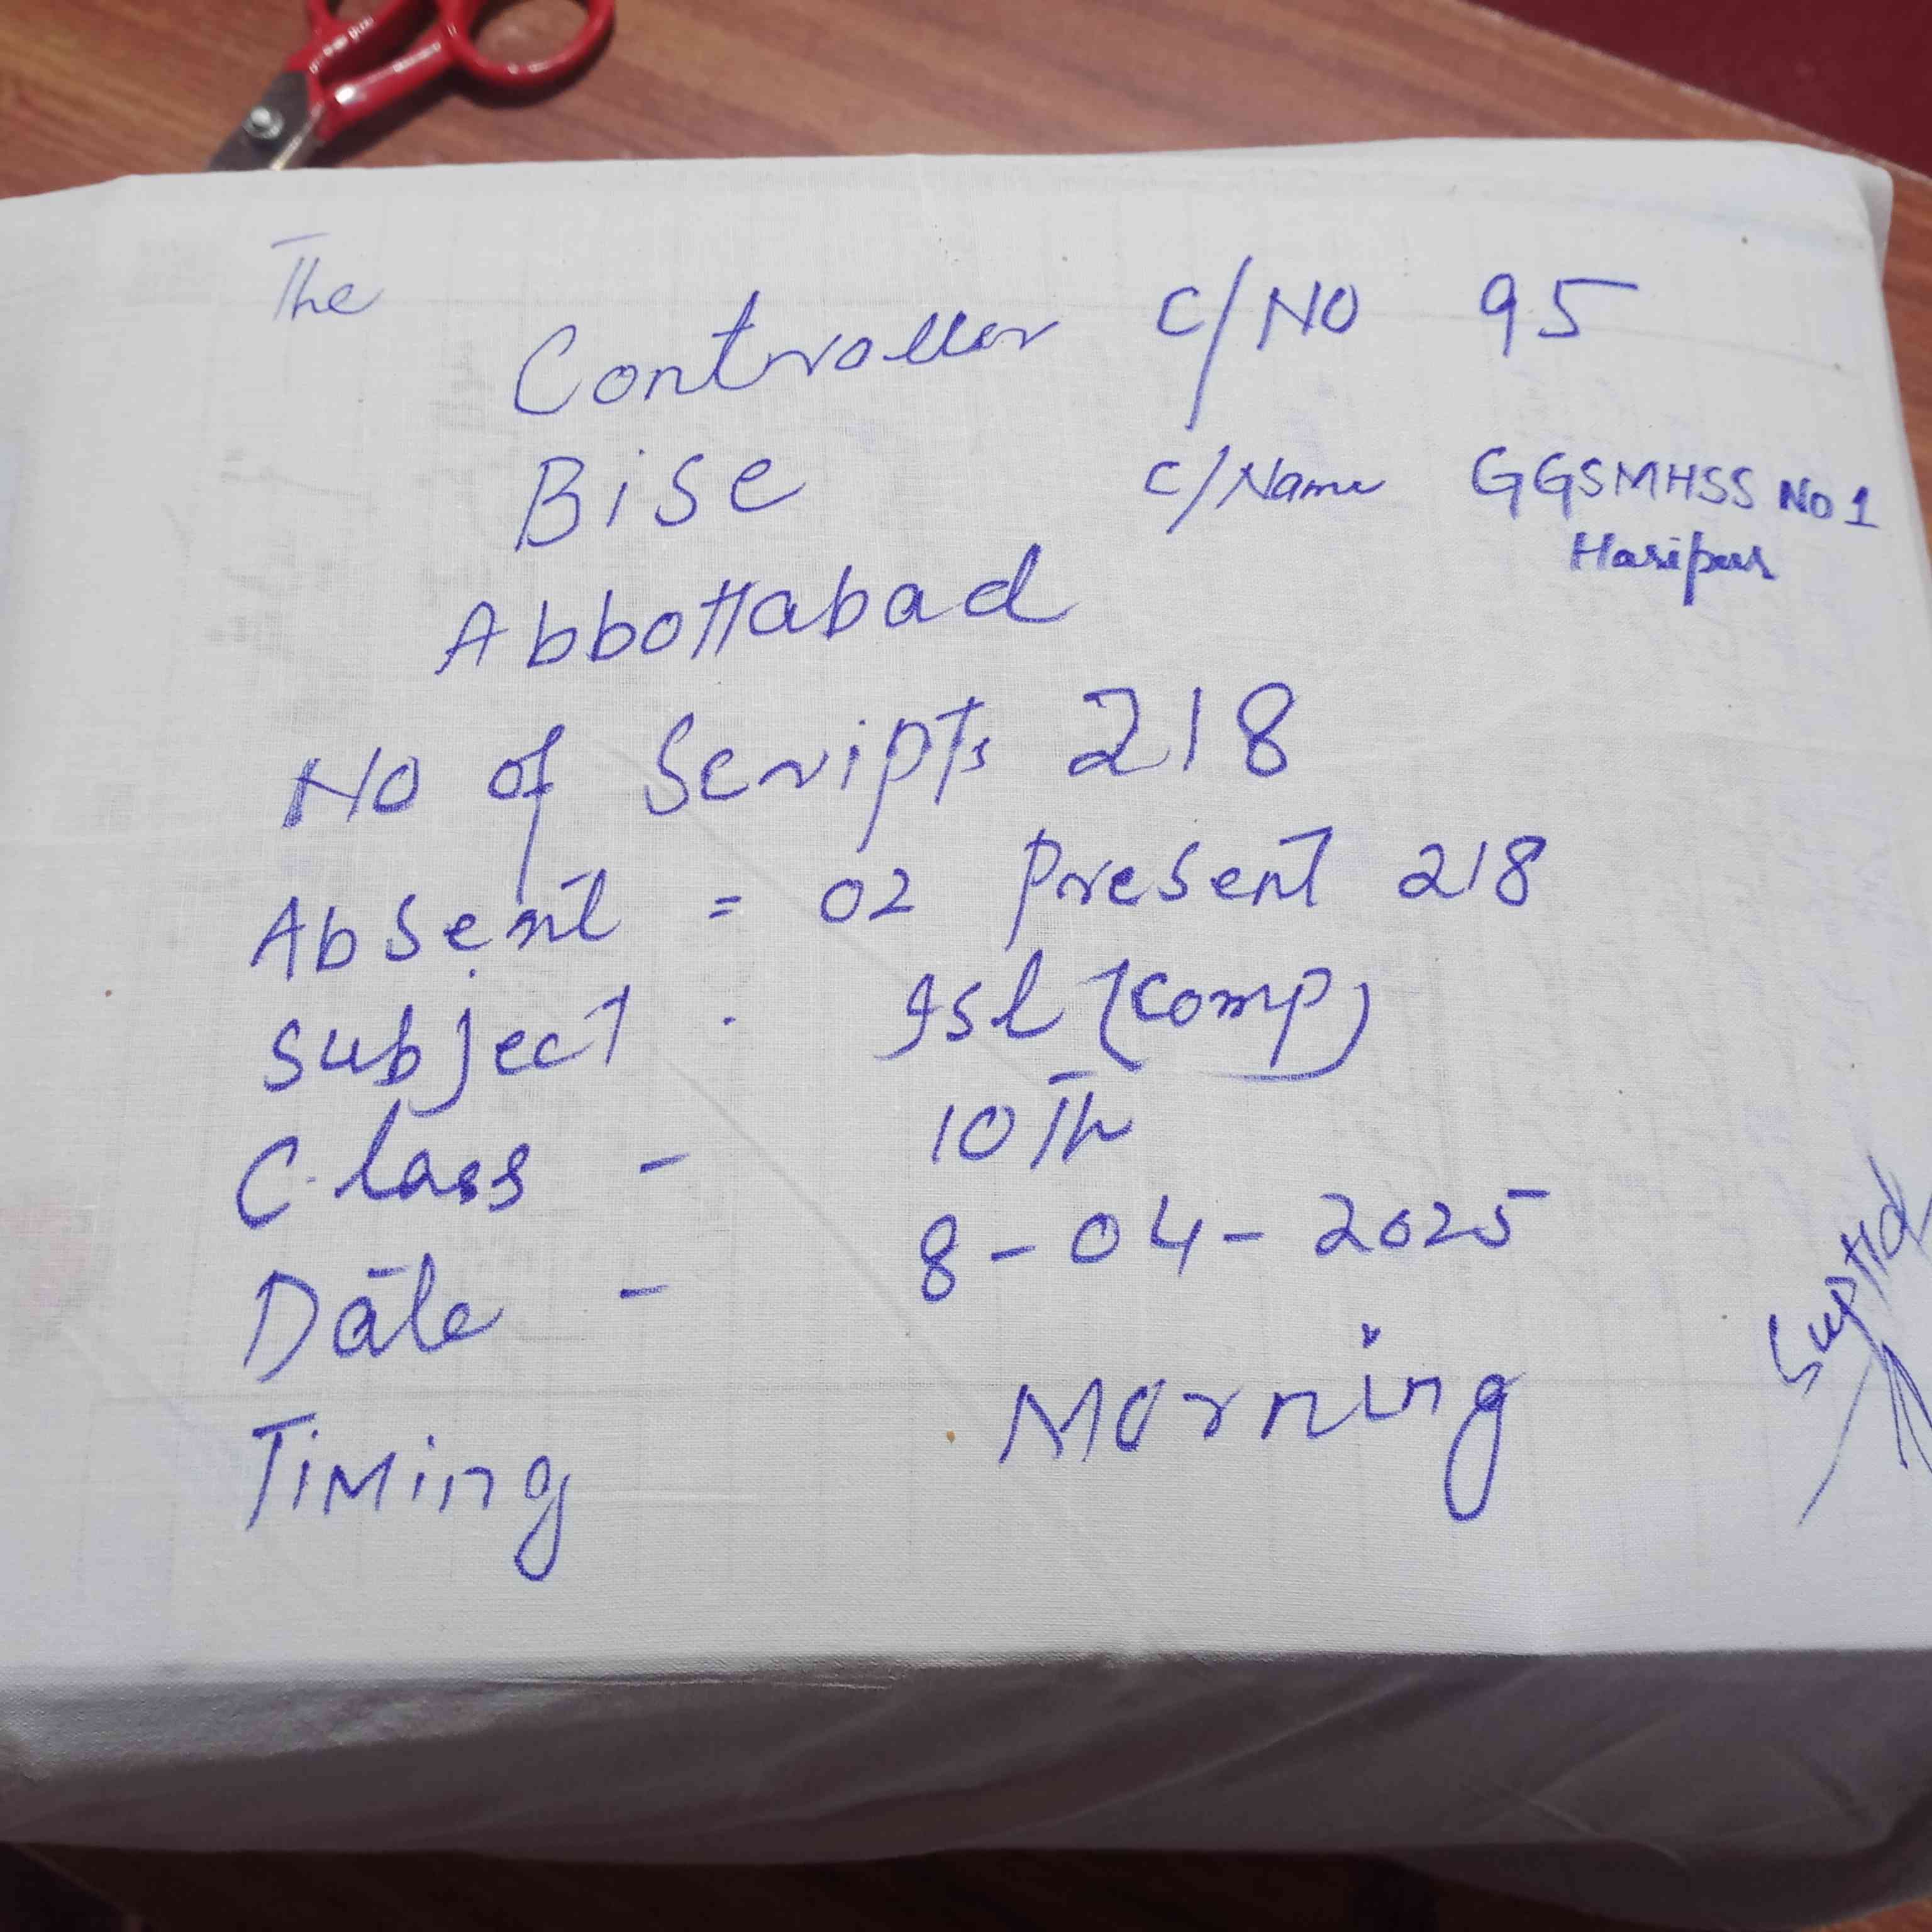 The
Controller C/NO 95
BiSe C/Name GGSMHSS No 1
Haripur
Abbottabad
NO of Scripts 218
Absent = 02 Present 218
Subject . Isl (Comp)
Class - 10Th
Date - 8-04-2025
TiMing Morning
Suptd